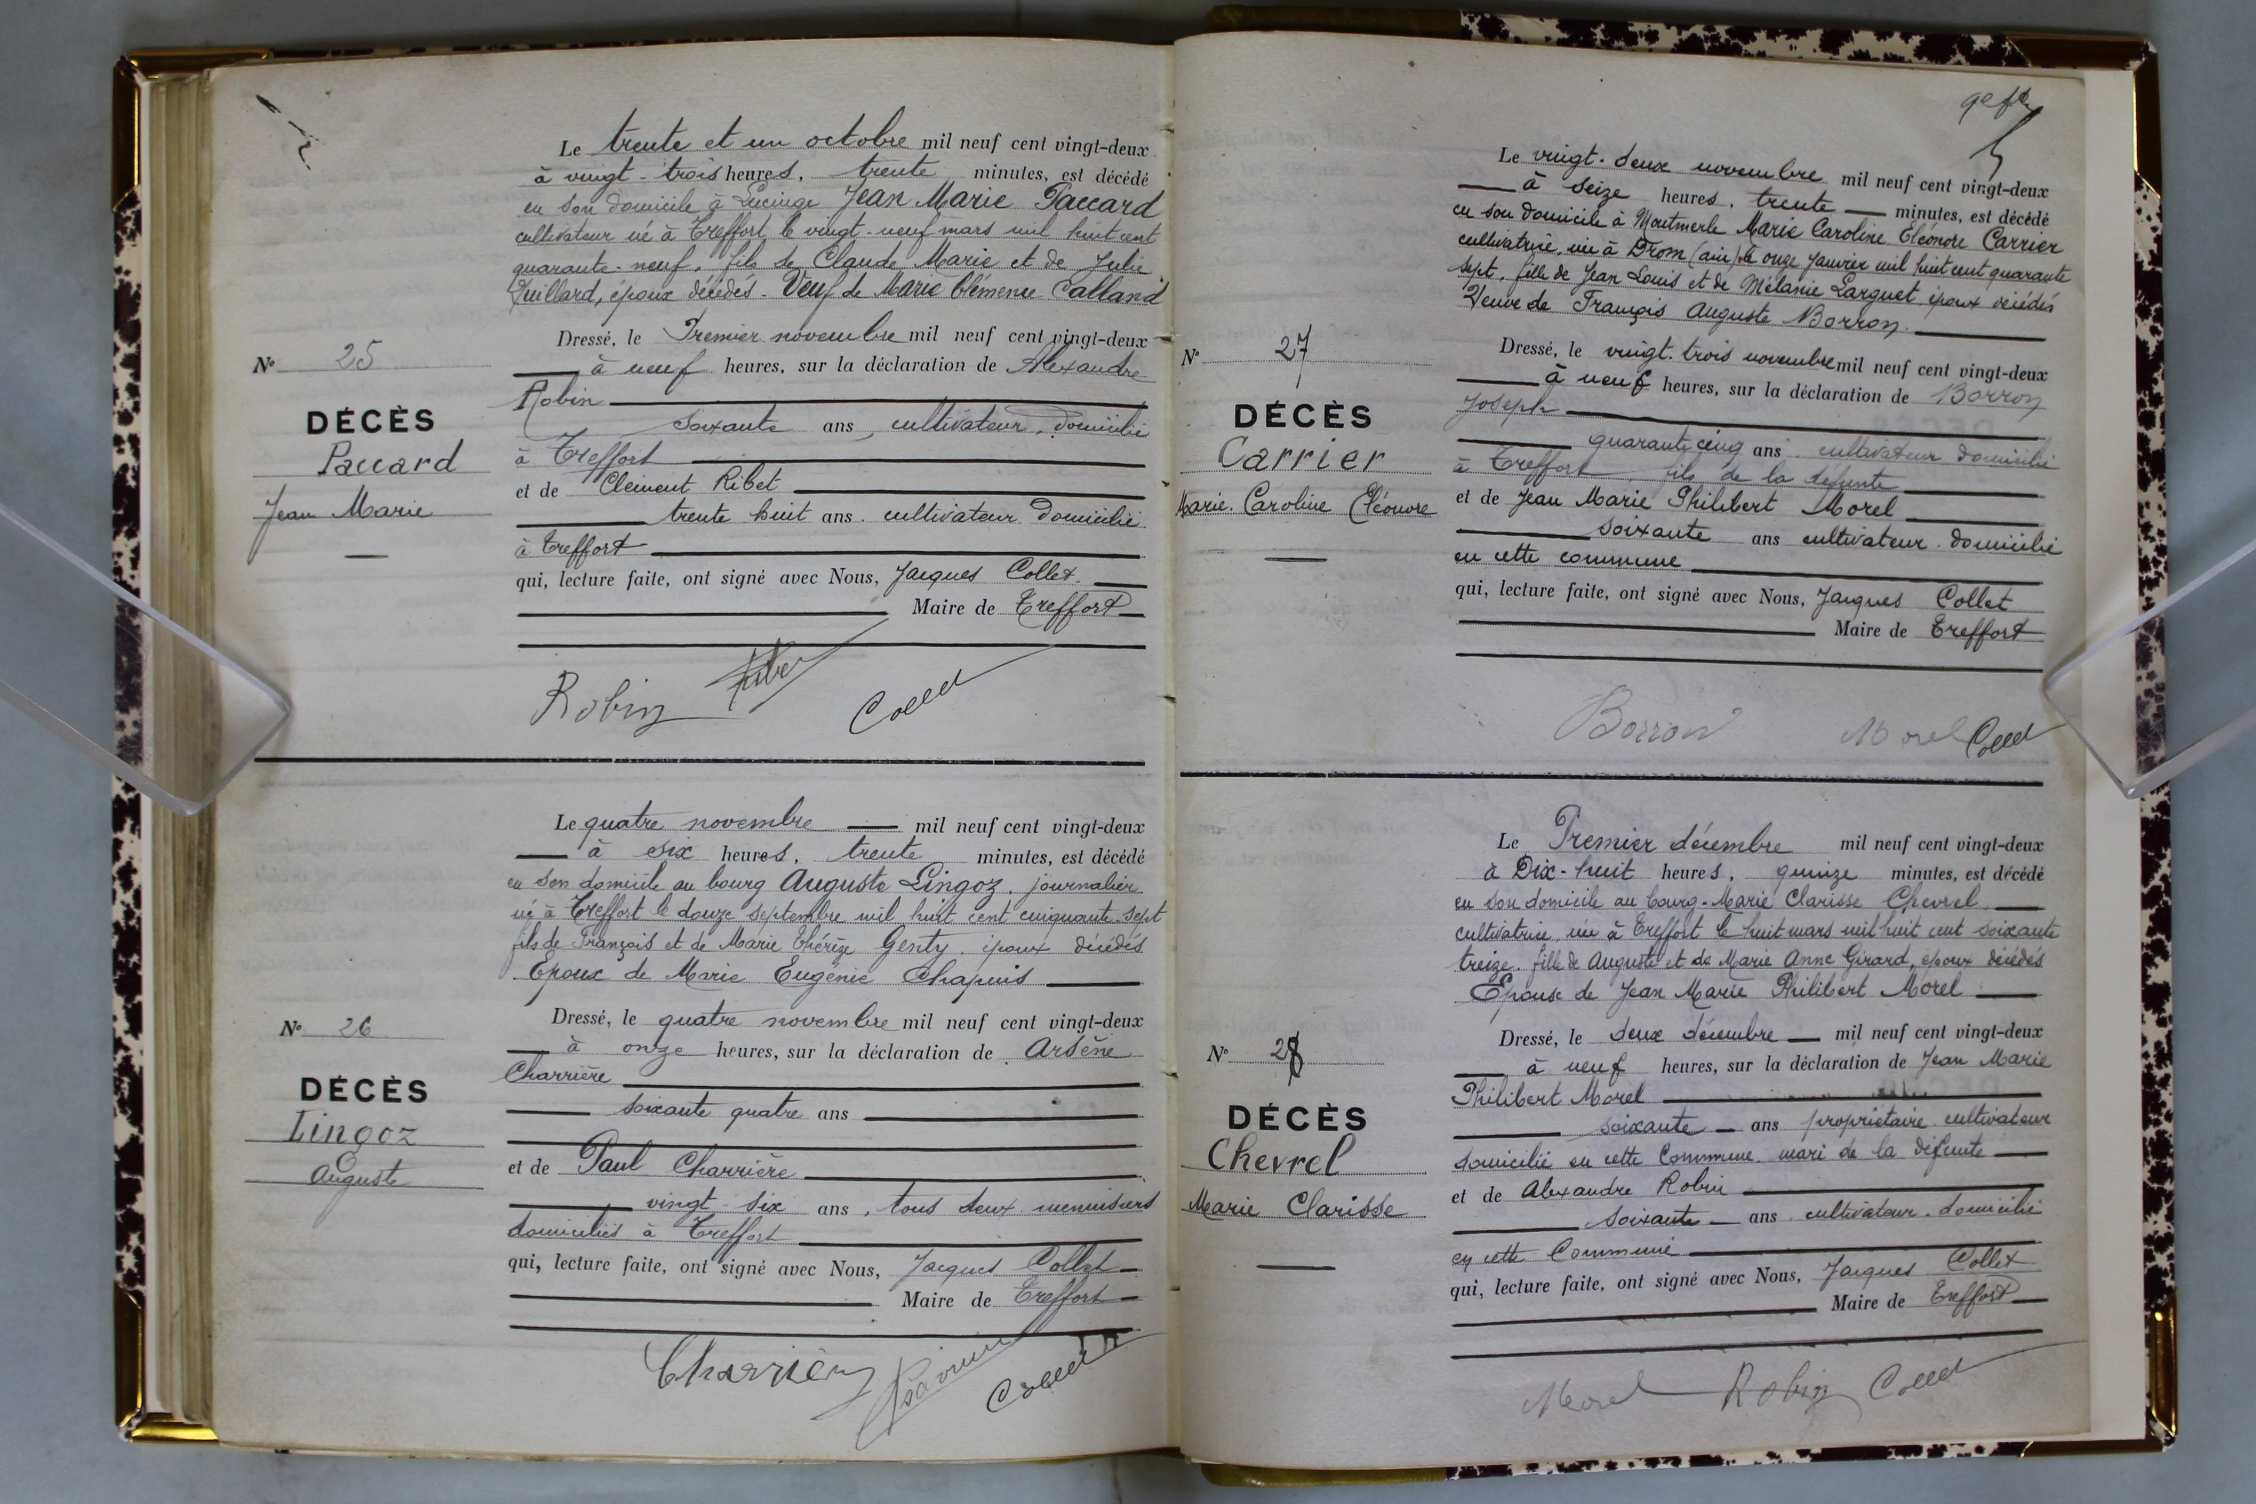 Le trente et un octobre mil neuf cent vingt-deux
à vingt-trois heures, trente minutes, est décédé
en son domicile à Lucinge Jean Marie Paccard
cultivateur né à Treffort le vingt-neuf mars mil huit cent
quarante-neuf, fils de Claude Marie et de Julie
Quillard, époux décédés. Veuf de Marie Clémence Calland
Dressé, le Premier novembre mil neuf cent vingt-deux
à neuf heures, sur la déclaration de Alexandre
Robin
soixante ans, cultivateur, domicilié
à Treffort
et de Clément Ribet
trente huit ans. cultivateur domicilié
à Treffort
qui, lecture faite, ont signé avec Nous, Jacques Collet.
Maire de Treffort
N° 25
DÉCÈS
Paccard
Jean Marie
Robin Collet
Le quatre novembre mil neuf cent vingt-deux
à six heures, trente minutes, est décédé
en son domicile au bourg Auguste Lingoz, journalier
né à Treffort le douze septembre mil huit cent cinquante-sept
fils de François et de Marie Thérèze Genty, époux décédés
Epoux de Marie Eugénie Chapuis
Dressé, le quatre novembre mil neuf cent vingt-deux
à onze heures, sur la déclaration de Arsène
Charrière
soixante quatre ans
et de Paul Charrière
vingt-six ans, tous deux menuisiers
domiciliés à Treffort
qui, lecture faite, ont signé avec Nous, Jacques Collet
Maire de Treffort
N° 26
DÉCÈS
Lingoz
Auguste
Charrière Collet
Le vingt-deux novembre mil neuf cent vingt-deux
à seize heures, trente minutes, est décédé
en son domicile à Montmerle Marie Caroline Eléonore Carrier
cultivatrice, née à Drom (ain) le onze janvier mil huit cent quarante
sept, fille de Jean Louis et de Mélanie Larguet, époux décédés
Veuve de François Auguste Borron
Dressé, le vingt-trois novembre mil neuf cent vingt-deux
à neuf heures, sur la déclaration de Borron
Joseph
quarante cinq ans cultivateur domicilié
à Treffort, fils de la défunte
et de Jean Marie Philibert Morel
soixante ans cultivateur domicilié
en cette commune
qui, lecture faite, ont signé avec Nous, Jacques Collet
Maire de Treffort
N° 27
DÉCÈS
Carrier
Marie Caroline Eléonore
Borron Morel Collet
Le Premier décembre mil neuf cent vingt-deux
à Dix-huit heures, quinze minutes, est décédé
en son domicile au bourg - Marie Clarisse Chevrel
cultivatrice, née à Treffort le huit mars mil huit cent soixante
treize, fille de Auguste et de Marie Anne Girard, époux décédés
Epouse de Jean Marie Philibert Morel
Dressé, le deux décembre mil neuf cent vingt-deux
à neuf heures, sur la déclaration de Jean Marie
Philibert Morel
soixante ans propriétaire cultivateur
domicilié en cette Commune mari de la défunte
et de Alexandre Robin
soixante ans cultivateur domicilié
en cette Commune
qui, lecture faite, ont signé avec Nous, Jacques Collet
Maire de Treffort
N° 28
DÉCÈS
Chevrel
Marie Clarisse
Morel Robin Collet